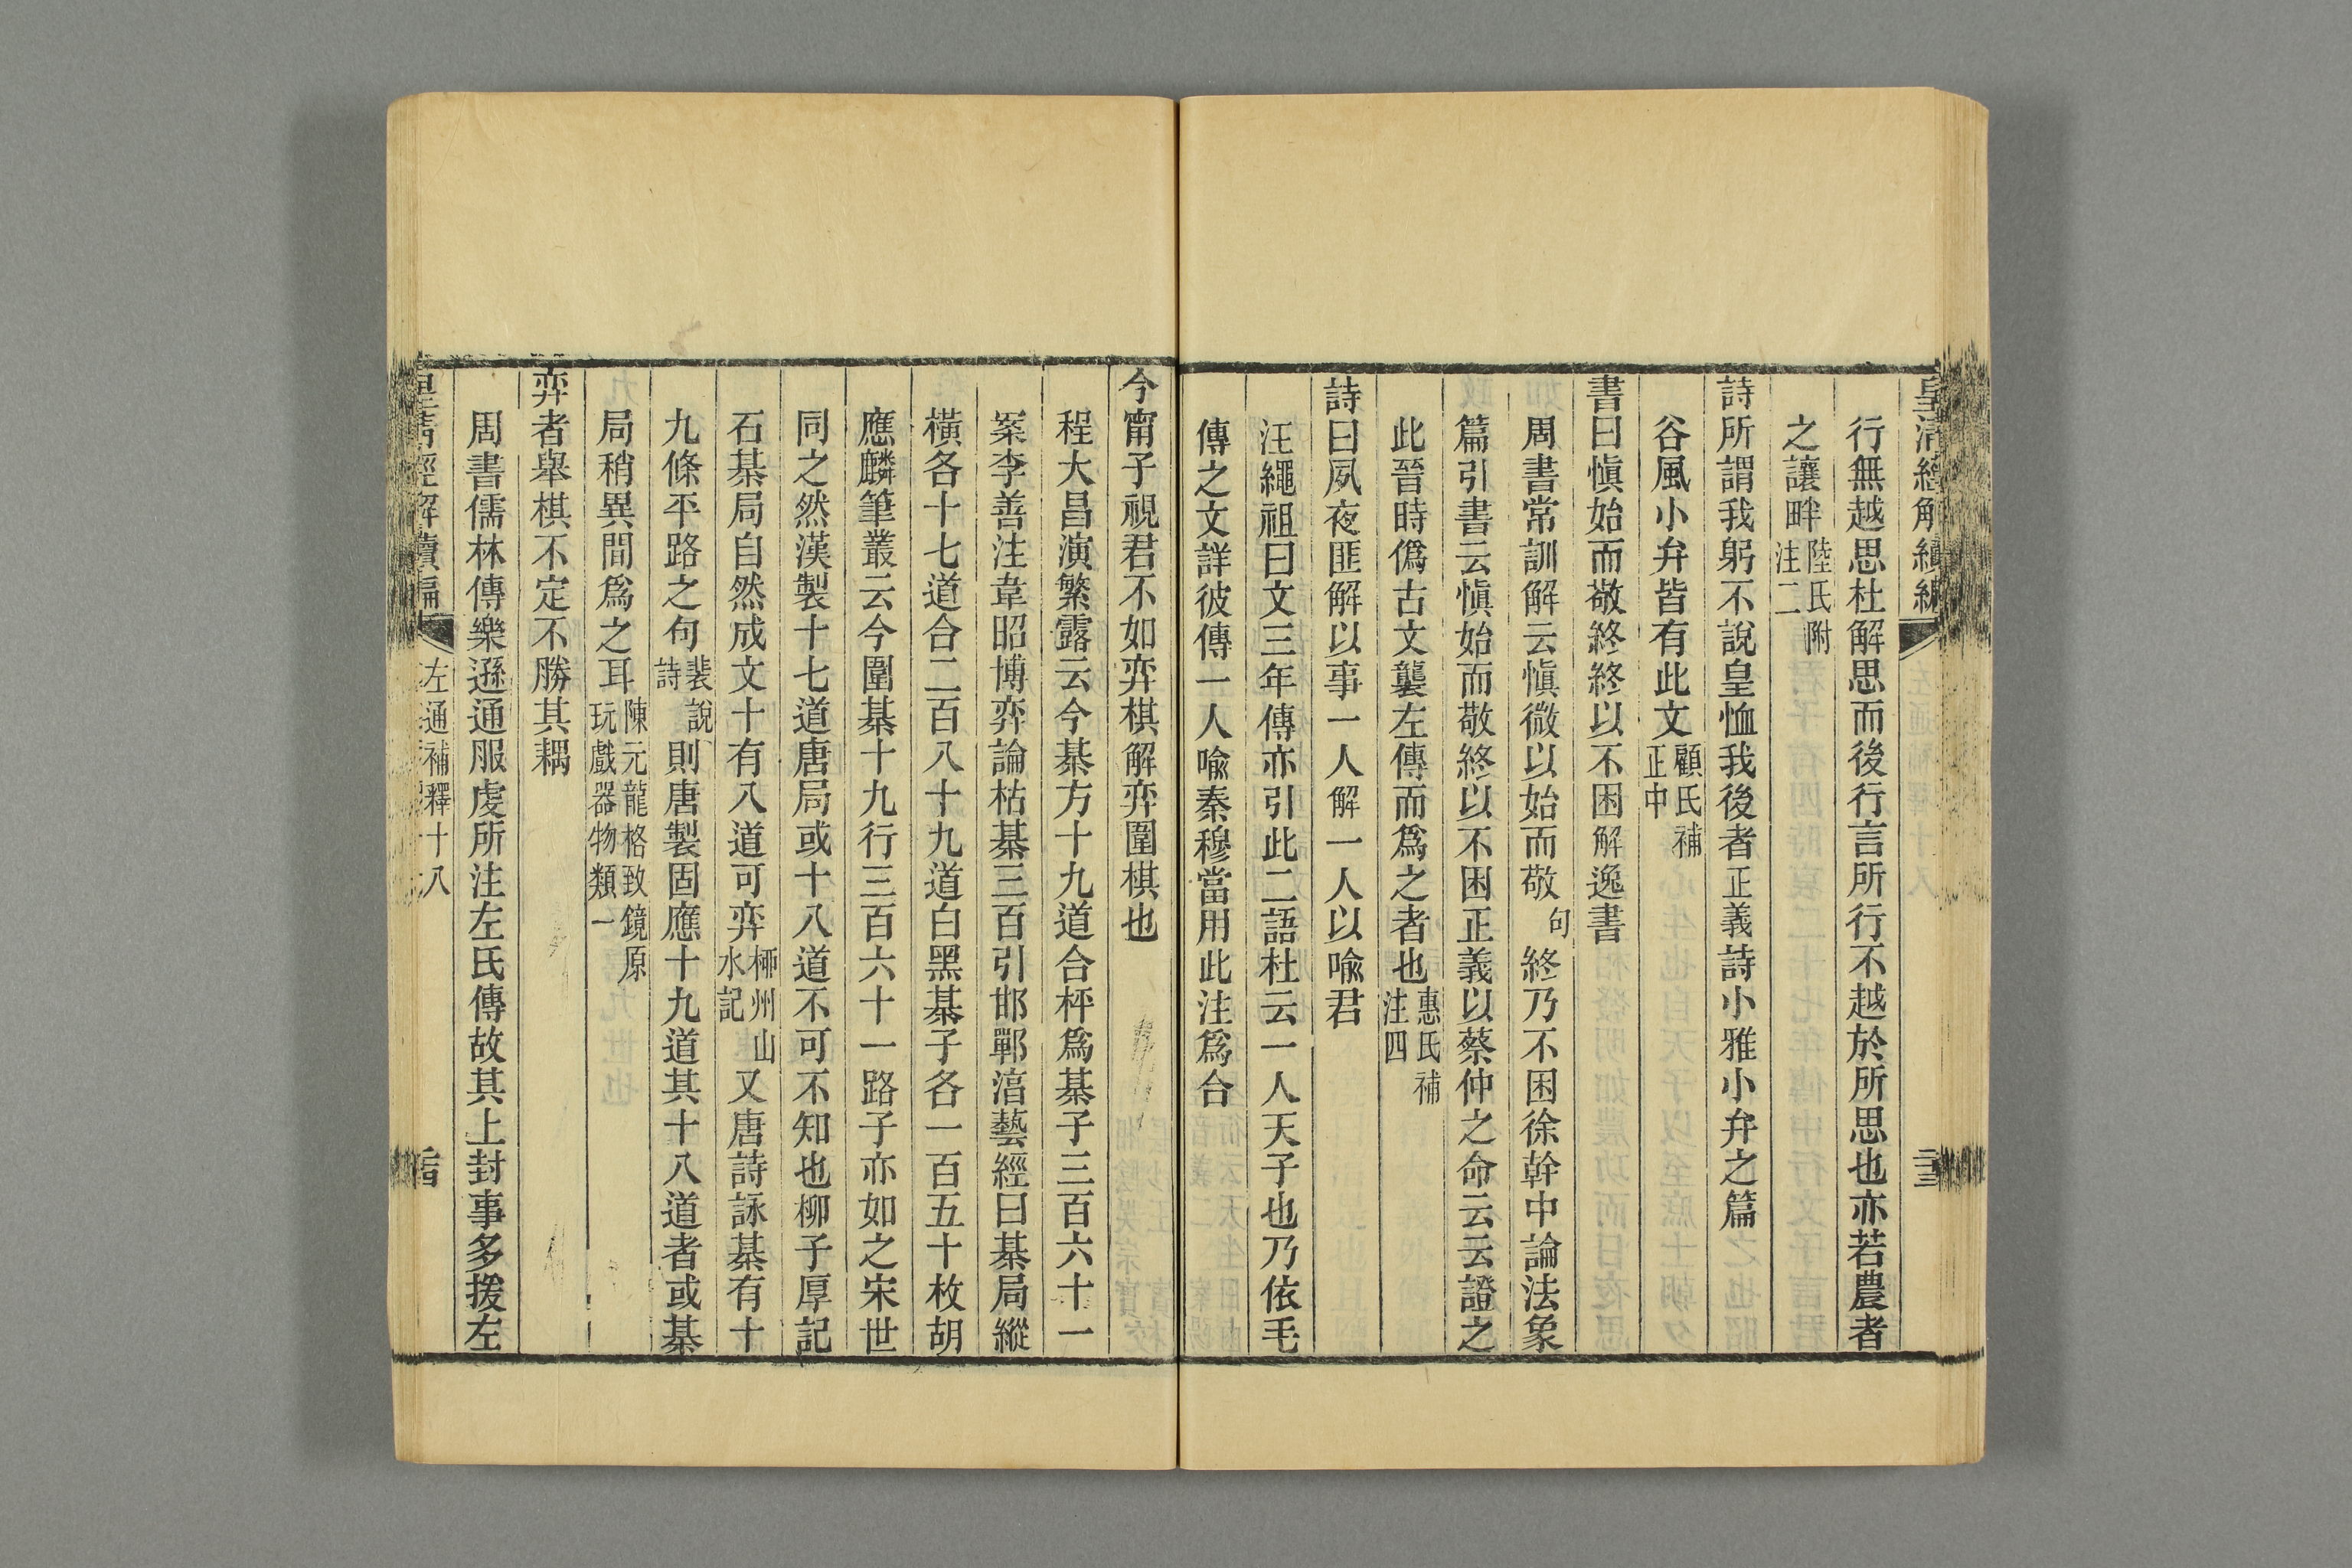 皇清經解續編
行無越思杜解思而後行言所行不越於所思也亦若農者
之讓畔陸氏附注二
詩所謂我躬不說皇恤我後者正義詩小雅小弁之篇
谷風小弁皆有此文顧氏補正中
書曰愼始而敬終終以不困解逸書
周書常訓解云愼微以始而敬句終乃不困徐幹中論法象
篇引書云愼始而敬終以不困正義以蔡仲之命云云證之
此晉時僞古文襲左傳而爲之者也惠氏補注四
詩曰夙夜匪解以事一人解一人以喩君
汪繩祖曰文三年傳亦引此二語杜云一人天子也乃依毛
傳之文詳彼傳一人喩秦穆當用此注爲合
今甯子視君不如弈棋解弈圍棋也
程大昌演繁露云今棊方十九道合枰爲棊子三百六十一
案李善注韋昭博弈論枯棊三百引邯鄲湻藝經曰棊局縱
橫各十七道合二百八十九道白黑棊子各一百五十枚胡
應麟筆叢云今圍棊十九行三百六十一路子亦如之宋世
同之然漢製十七道唐局或十八道不可不知也柳子厚記
石棊局自然成文十有八道可弈柳州山水記又唐詩詠棊有十
九條平路之句裴說詩則唐製固應十九道其十八道者或棊
局稍異間爲之耳陳元龍格致鏡原玩戲器物類一
弈者舉棋不定不勝其耦
周書儒林傳樂遜通服虔所注左氏傳故其上封事多援左
皇清經解續編
左通補釋十八